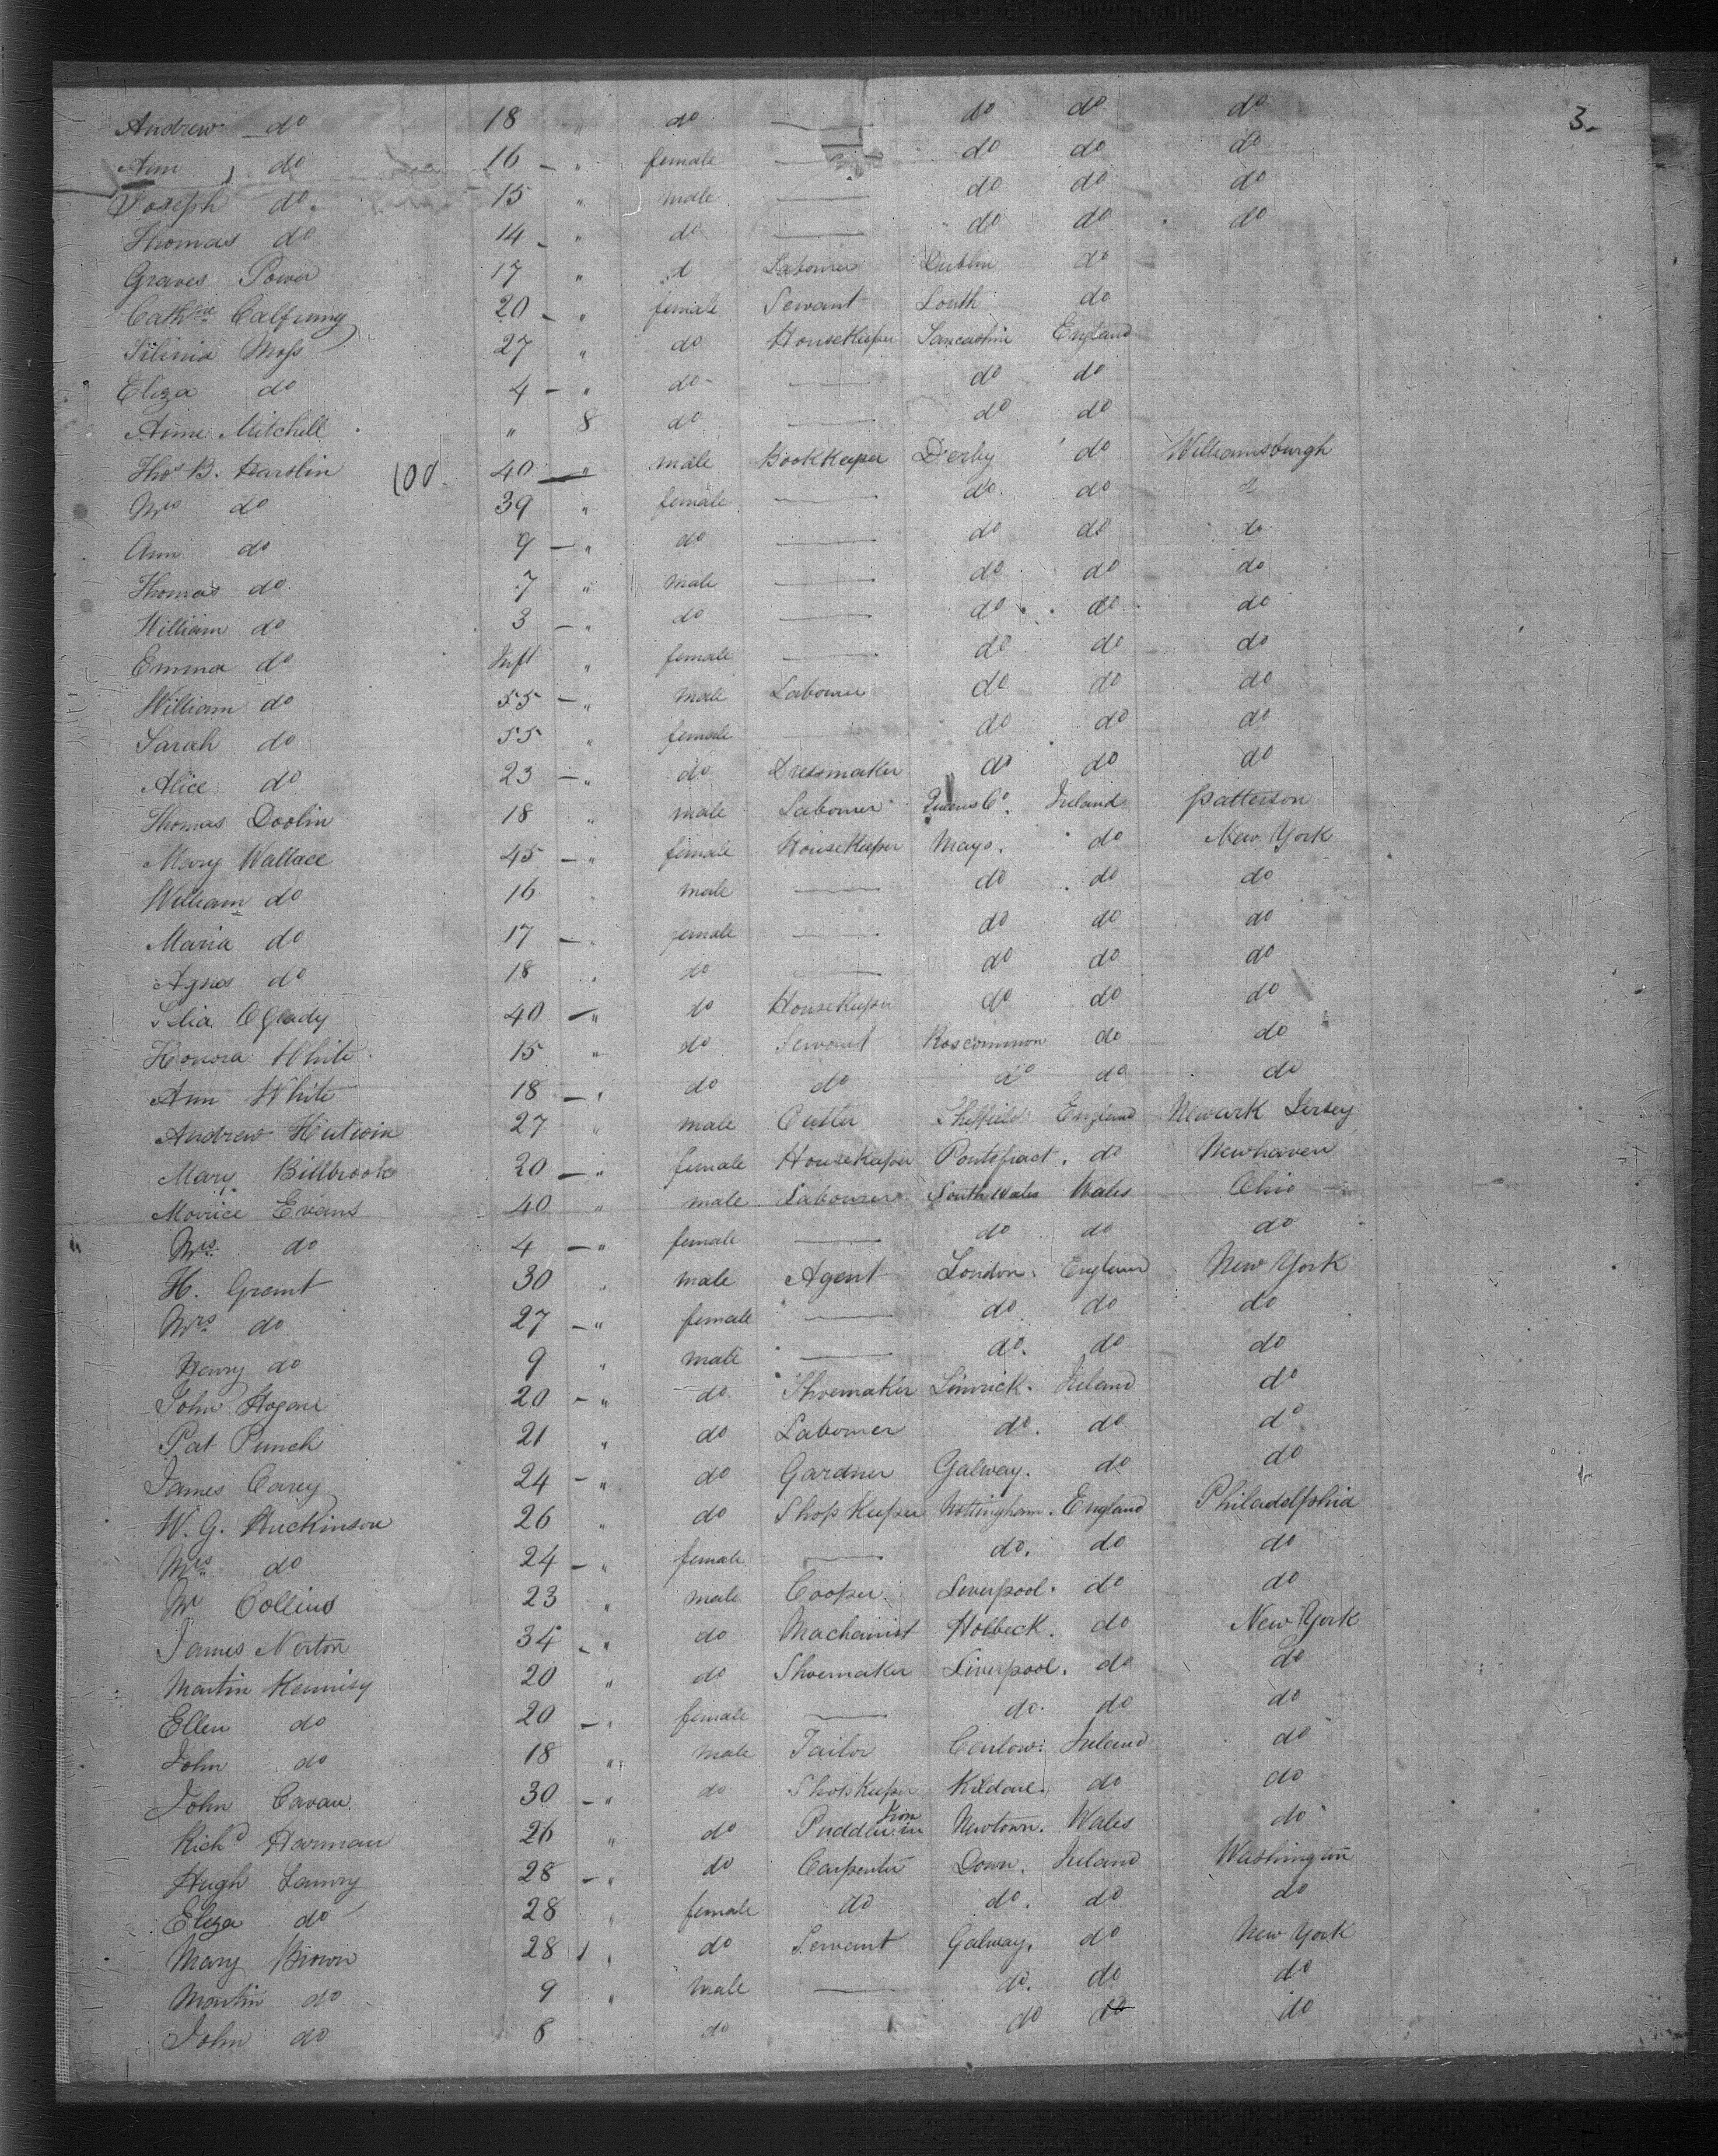 3.
Andrew do 18 " do — do do do
Ann do 16 — " female — do do do
Joseph do 15 " male — do do do
Thomas do 14 — " do — do do do
Graves Power 17 " d Labourer Dublin do
Cathne Calfrung 20 — " female Servant Louth do
Silinia Moss 27 " do HouseKeeper Lancashire England
Eliza do 4 — " do — do do
Anne Mitchell " 8 do — do do
Thos B. Harslin 100 40 — " male BookKeeper Derby do Williamsburgh
Mrs do 39 " female — do do do
Ann do 9 — " do — do do do
Thomas do 7 " male — do do do
William do 3 — " do — do do do
Emma do Inft " female — do do do
William do 55 — " male Labourer do do do
Sarah do 55 " female do do do
Alice do 23 — " do Dressmaker do do do
Thomas Doolin 18 " male Labourer Queens Co. Ireland Patterson
Mary Wallace 45 — " female HouseKeeper Mayo. do New York
William do 16 " male — do do do
Maria do 17 — " female — do do do
Agnes do 18 " do — do do do
OGrady 40 — " do HouseKeeper do do do
Honora White 15 " do Servant Roscommon do do
Ann White 18 — " do do do do do
Andrew Hutwin 27 " male Cutler Sheffield England Newark Jersey
Mary Billbrook 20 — " female HouseKeeper Pontefract. do Newhaven
Morrice Evans 40 " male Labourer South Wales Wales Ohio
Mrs do 4 — " female — do do do
H. Grant 30 " male Agent London. England New York
Mrs do 27 — " female — do do do
Henry do 9 " male — do. do do
John Hogane 20 — " do Shoemaker Limrick. Ireland do
Pat Punch 21 " do Labourer do. do do
James Carey 24 — " do Gardner Galway. do do
W. G. Huckinson 26 " do Shop Keeper Nottingham. England Philadelphia
Mrs do 24 — " female — do. do do
Mr Collins 23 " male Cooper Liverpool. do do
James Norton 34 — " do Machanist Holbeck. do New York
Martin Kennisy 20 " do Shoemaker Liverpool. do do
Ellen do 20 — " female — do. do do
John do 18 " male Tailor Carlow. Ireland do
John Cavan 30 — " do ShopKeeper Kildare. do do
Richd Harman 26 " do Puddler in Iron Newtown. Wales do
Hugh Lowry 28 — " do Carpenter Down. Ireland Washington
Eliza do 28 " female do do. do do
Mary Brown 28 " do Servant Galway. do New York
Martin do 9 " male — do. do do
John do 8 do — do do do